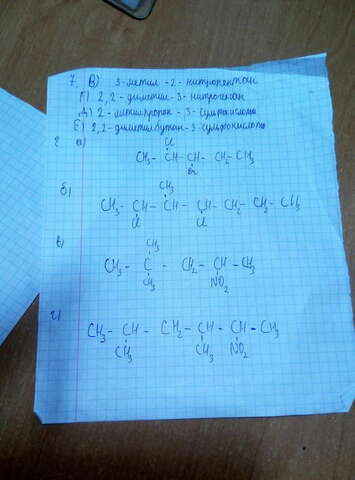 7. В) 3-метил-2-нитропентан
Г) 2,2-диметил-3-нитрогексан
Д) 2-метилпропан-3-сульфокислота
Е) 2,2-диметилбутан-3-сульфокислота
2 а) Cl
CH₃ - CH - CH - CH₂ - CH₃
Br
б) CH₃
CH₃ - CH - CH - CH - CH₂ - CH₂ - CH₃
Cl Cl
в) CH₃
CH₃ - C - CH₂ - CH - CH₃
CH₃ NO₂
г)
CH₃ - CH - CH₂ - CH - CH - CH₃
CH₃ CH₃ NO₂